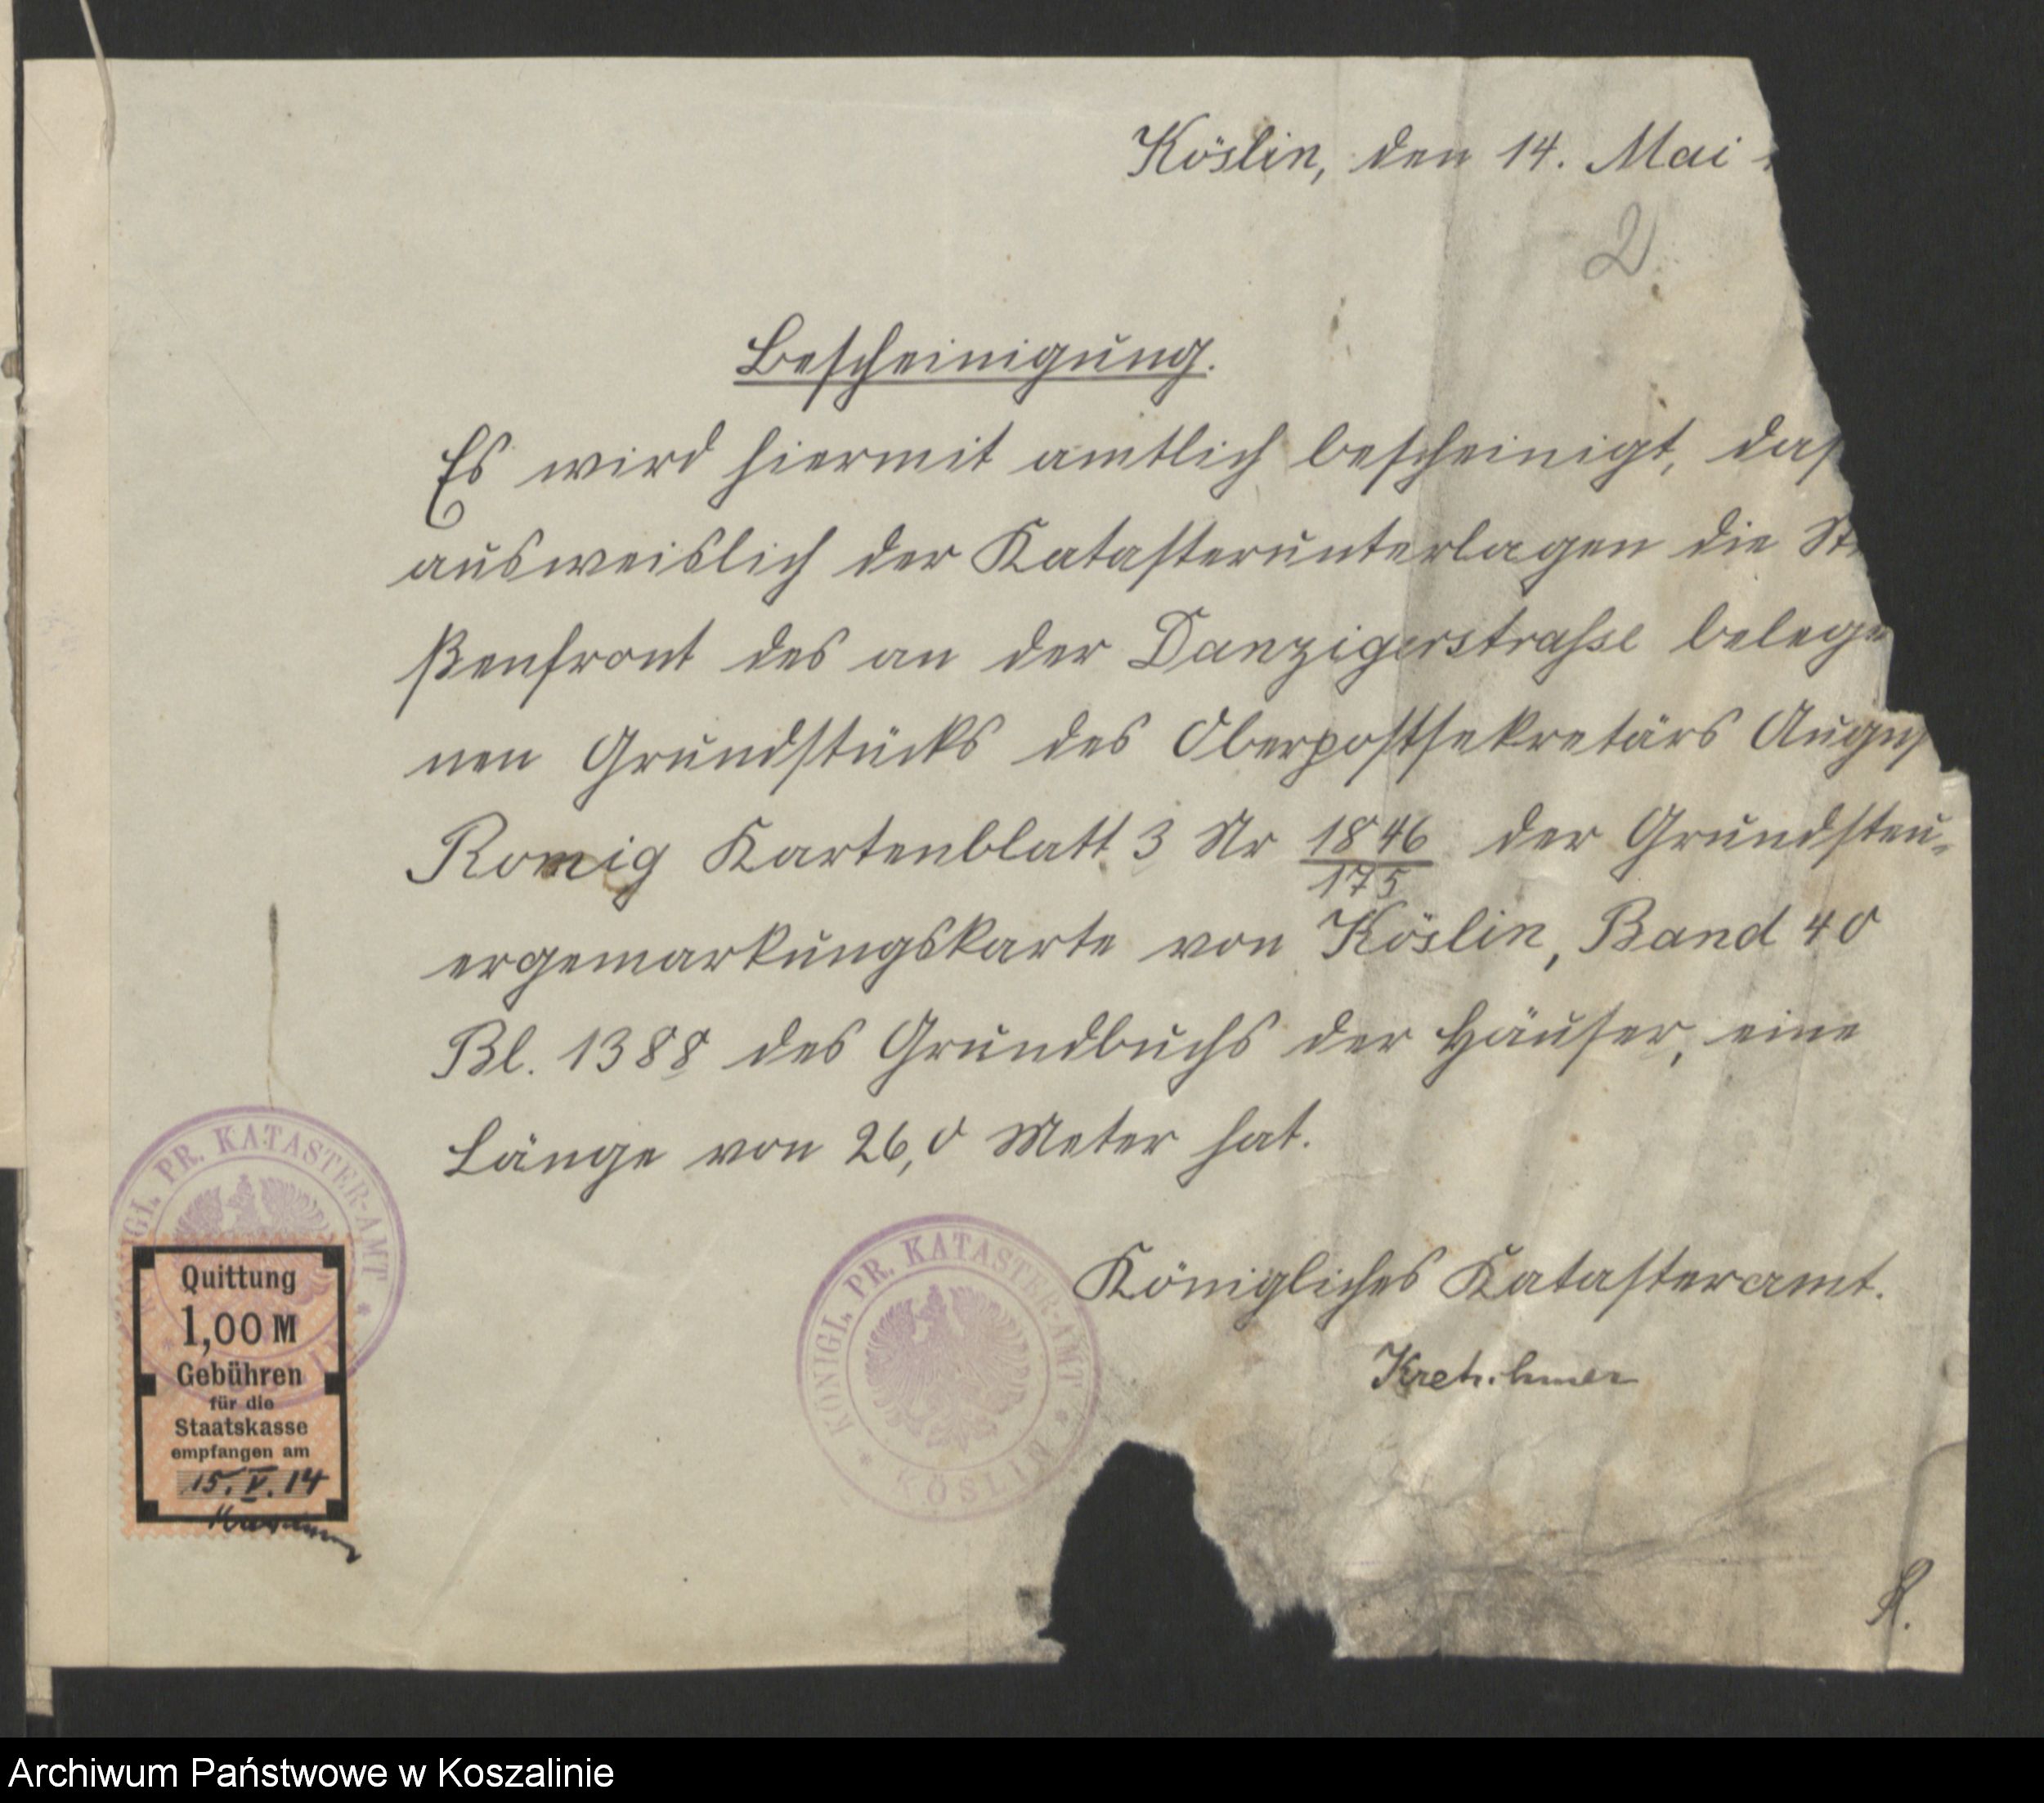 Köslin, den 14. Mai
2
Bescheinigung.
Es wird hiermit amtlich bescheinigt, daß
ausweislich der Katasterunterlagen die St
ßenfront des an der Danzigerstrasse belege
nen Grundstücks des Oberpostsekretärs Augus
Romig Kartenblatt 3 Nr 1846/175 der Grundsteu-
ergemarkungskarte von Köslin, Band 40
Bl. 1388 des Grundbuchs der Häuser, eine
Länge von 26,0 Meter hat.
Königliches Katasteramt.
Kretschmer
KÖNIGL. PR. KATASTER-AMT * KÖSLIN *
IGL. PR. KATASTER-AMT *
Quittung
1,00 M
Gebühren
für die
Staatskasse
empfangen am
15. V. 14
K.
Archiwum Państwowe w Koszalinie